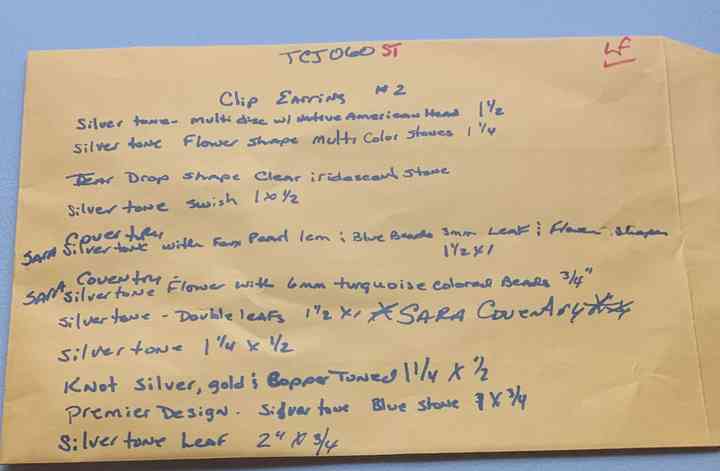 TCJ060 ST LF
Clip Earring #2
Silver tone - multi disc w/ Native American Head 1 1/2
Silver tone Flower shape multi Color Stones 1 1/4
Tear Drop shape Clear iridescent stone
Silver tone swish 1 x 1/2
Sara Coventry
Silver tone with Faux Pearl 1cm ; Blue Beads 3mm Leaf ; Flower shapes
1 1/2 x 1
Sara Coventry
Silvertone Flower with 6mm turquoise colored Beads 3/4"
Silvertone - Double leafs 1 1/2 x 1 * SARA Coventry
Silvertone 1 1/4 x 1/2
Knot Silver, gold ; Copper Toned 1 1/4 x 1/2
Premier Design - Silver tone Blue stone 1 x 3/4
Silver tone Leaf 2" x 3/4